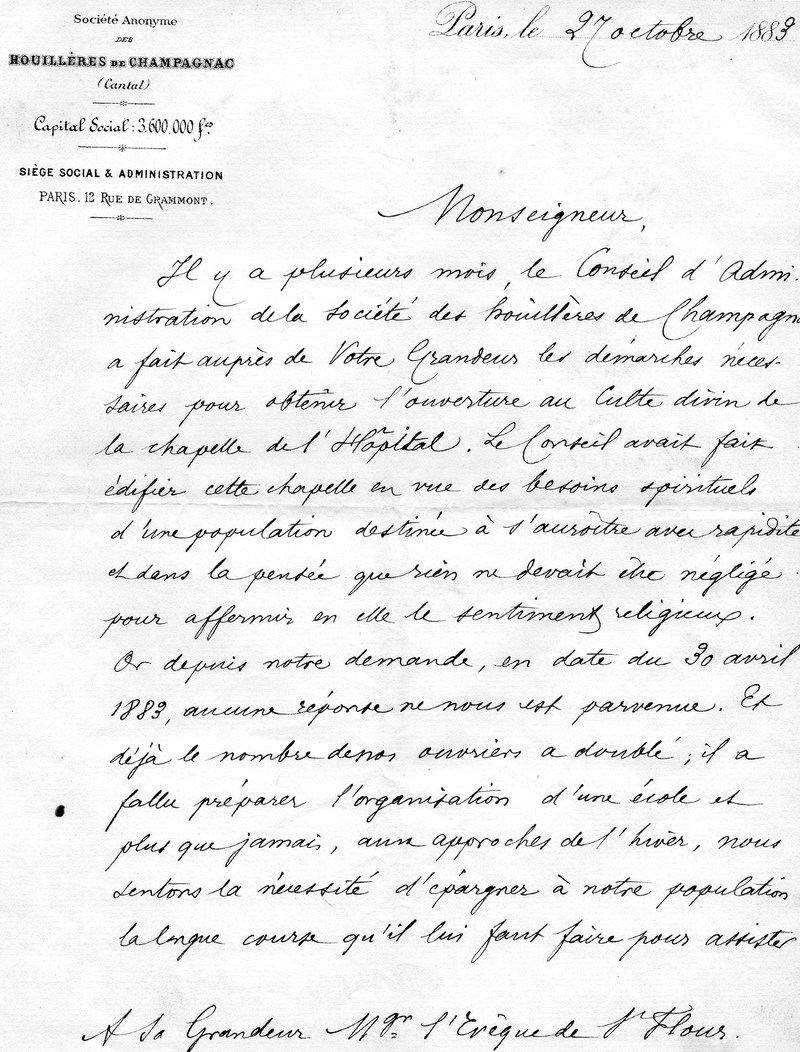 Société Anonyme
DES
HOUILLÈRES DE CHAMPAGNAC
(Cantal)
Capital Social : 3.600.000 fcs
SIÈGE SOCIAL & ADMINISTRATION
PARIS. 12 RUE DE GRAMMONT.
Paris, le 27 octobre 1883
Monseigneur,
Il y a plusieurs mois, le Conseil d'Admi-
nistration de la Société des houillères de Champagn
a fait auprès de Votre Grandeur les démarches néces-
saires pour obtenir l'ouverture au Culte divin de
la chapelle de l'Hôpital. Le Conseil avait fait
édifier cette chapelle en vue des besoins spirituels
d'une population destinée à s'accroître avec rapidité
et dans la pensée que rien ne devait être négligé
pour affermir en elle le sentiment religieux.
Or depuis notre demande, en date du 30 avril
1883, aucune réponse ne nous est parvenue. Et
déjà le nombre de nos ouvriers a doublé ; il a
fallu préparer l'organisation d'une école et
plus que jamais, aux approches de l'hiver, nous
sentons la nécessité d'épargner à notre population
la longue course qu'il lui faut faire pour assister
A Sa Grandeur Mgr l'Evêque de St Flour.